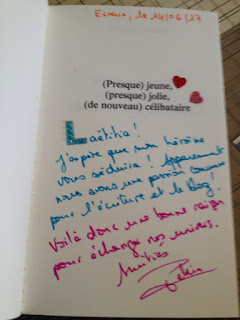 Evreux, le 14/06/17
(Presque) jeune,
(presque) jolie,
(de nouveau) célibataire
Laëtitia !
J'espère que mon héroïne
vous séduira ! Apparemment
nous avons une passion commune
pour l'écriture et le blog !
Voilà donc une bonne raison
pour échanger nos univers.
Amitiés